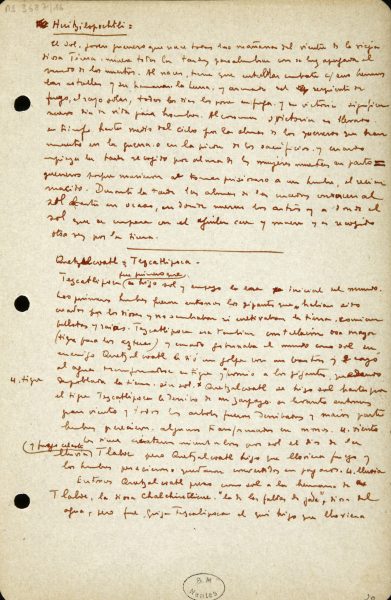 Huitzilopochtli =
El sol, joven guerrero que nace todas las mañanas del vientre de la vieja
diosa tierra y muere todas las tardes para alumbrar con su luz apagada el
mundo de los muertos. Al nacer, tiene que entablar combate c/ sus hermanos
las estrellas y su hermana la luna, y armado del serpiente de
fuego, el rayo solar, todos los días los pone en fuga y su victoria significa
nuevo día de vida para hombres. Al consumar victoria es llevado
en triunfo hasta medio del cielo por las almas de los guerreros que han
muerto en la guerra o en la piedra de los sacrificios, y cuando
empieza la tarde recogido por almas de las mujeres muertas en parto =
guerreros porque murieron al tomar prisionero a un hombre, el recién
nacido. Durante la tarde las almas de las madres conducen al
sol hasta en ocaso, en donde mueren los astros y a donde el
sol que se compara con el águila cae y muere y es recogido
otra vez por la tierra.
Quetzalcoatl y Tezcatlipoca -
fue primero que
Tezcatlipoca se hizo sol y empezó la era inicial del mundo.
Los primeros hombres fueron entonces los gigantes que habían sido
creados por los dioses y no sembraban ni cultivaban la tierra. comían
bellotas y raíces. Tezcatlipoca era también constelación osa mayor
(tigre para los aztecas) y cuando gobernaba el mundo como sol su
enemigo Quetzalcoatl le dió un golpe con un bastón y cayó
al agua transformándose en tigre y comió a los gigantes, quedando
4. tigre despoblada la tierra sin sol. Y Quetzalcoatl se hizo sol hasta que
el tigre Tezcatlipoca lo derribó de un zarpazo. Se levantó entonces
gran viento y todos los árboles fueron derribados y mayor parte
hombres perecieron. algunos transformados en monos. 4. viento
Los dioses crearon por sol el dios de la
y fuego celeste
lluvia Tlaloc pero Quetzalcoatl hizo que lloviera fuego y
los hombres perecieron o quedaron convertidos en pájaros. 4. lluvia
Entonces Quetzalcoatl puso como sol a la hermana de
Tlaloc, la diosa Chalchiutlicue "la de las faldas de jade", diosa del
agua, pero fue quizá Tezcatlipoca el que hizo que lloviera
B. M
Nantes